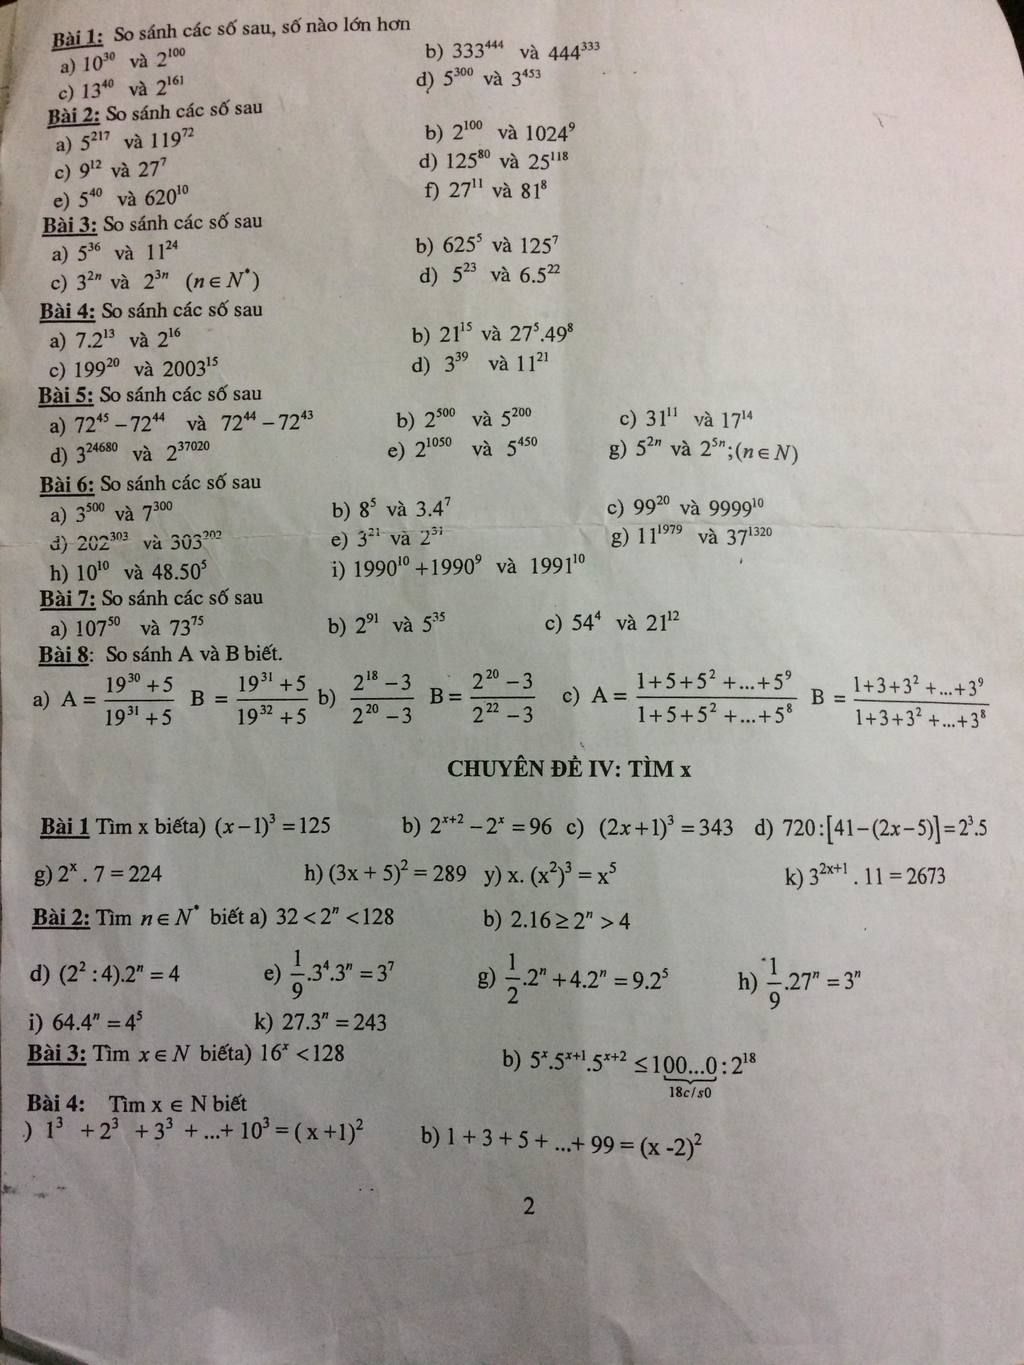 Bài 1: So sánh các số sau, số nào lớn hơn
a) 10³⁰ và 2¹⁰⁰ b) 333⁴⁴⁴ và 444³³³
c) 13⁴⁰ và 2¹⁶¹ d) 5³⁰⁰ và 3⁴⁵³
Bài 2: So sánh các số sau
a) 5²¹⁷ và 119⁷² b) 2¹⁰⁰ và 1024⁹
c) 9¹² và 27⁷ d) 125⁸⁰ và 25¹¹⁸
e) 5⁴⁰ và 620¹⁰ f) 27¹¹ và 81⁸
Bài 3: So sánh các số sau
a) 5³⁶ và 11²⁴ b) 625⁵ và 125⁷
c) 3²ⁿ và 2³ⁿ (n ∈ N*) d) 5²³ và 6.5²²
Bài 4: So sánh các số sau
a) 7.2¹³ và 2¹⁶ b) 21¹⁵ và 27⁵.49⁸
c) 199²⁰ và 2003¹⁵ d) 3³⁹ và 11²¹
Bài 5: So sánh các số sau
a) 72⁴⁵ – 72⁴⁴ và 72⁴⁴ – 72⁴³ b) 2⁵⁰⁰ và 5²⁰⁰ c) 31¹¹ và 17¹⁴
d) 3²⁴⁶⁸⁰ và 2³⁷⁰²⁰ e) 2¹⁰⁵⁰ và 5⁴⁵⁰ g) 5²ⁿ và 2⁵ⁿ;(n ∈ N)
Bài 6: So sánh các số sau
a) 3⁵⁰⁰ và 7³⁰⁰ b) 8⁵ và 3.4⁷ c) 99²⁰ và 9999¹⁰
d) 202³⁰³ và 303²⁰² e) 3²¹ và 2³¹ g) 11¹⁹⁷⁹ và 37¹³²⁰
h) 10¹⁰ và 48.50⁵ i) 1990¹⁰ + 1990⁹ và 1991¹⁰
Bài 7: So sánh các số sau
a) 107⁵⁰ và 73⁷⁵ b) 2⁹¹ và 5³⁵ c) 54⁴ và 21¹²
Bài 8: So sánh A và B biết.
a) A = (19³⁰ + 5)/(19³¹ + 5) B = (19³¹ + 5)/(19³² + 5) b) (2¹⁸ – 3)/(2²⁰ – 3) B = (2²⁰ – 3)/(2²² – 3) c) A = (1+5+5² +...+5⁹)/(1+5+5² +...+5⁸) B = (1+3+3² +...+3⁹)/(1+3+3² +...+3⁸)
CHUYÊN ĐỀ IV: TÌM x
Bài 1 Tìm x biếta) (x – 1)³ = 125 b) 2ˣ⁺² – 2ˣ = 96 c) (2x + 1)³ = 343 d) 720:[41 – (2x – 5)] = 2³.5
g) 2ˣ . 7 = 224 h) (3x + 5)² = 289 y) x. (x²)³ = x⁵ k) 3²ˣ⁺¹ . 11 = 2673
Bài 2: Tìm n ∈ N* biết a) 32 < 2ⁿ < 128 b) 2.16 ≥ 2ⁿ > 4
d) (2² : 4).2ⁿ = 4 e) 1/9.3⁴.3ⁿ = 3⁷ g) 1/2.2ⁿ + 4.2ⁿ = 9.2⁵ h) 1/9.27ⁿ = 3ⁿ
i) 64.4ⁿ = 4⁵ k) 27.3ⁿ = 243
Bài 3: Tìm x ∈ N biếta) 16ˣ < 128 b) 5ˣ.5ˣ⁺¹.5ˣ⁺² ≤ 100...0 : 2¹⁸
18c/s0
Bài 4: Tìm x ∈ N biết
) 1³ + 2³ + 3³ + ...+ 10³ = ( x +1)² b) 1 + 3 + 5 + ...+ 99 = (x -2)²
2